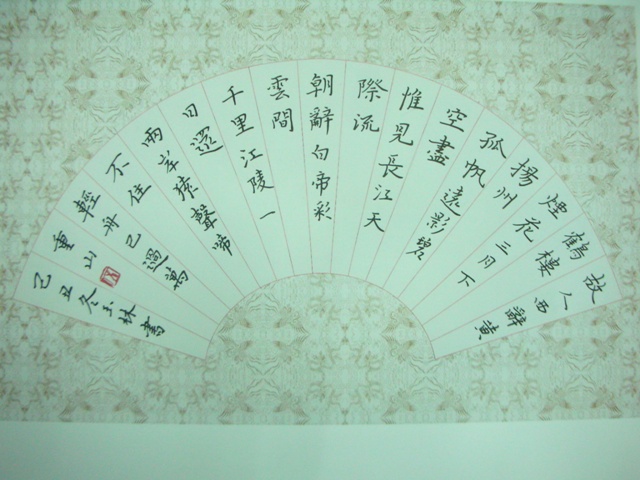 故人西辭黃
鶴樓
煙花三月下
揚州
孤帆遠影碧
空盡
惟見長江天
際流
朝辭白帝彩
雲間
千里江陵一
日還
兩岸猿聲啼
不住
輕舟已過萬
重山
己丑冬玉林書